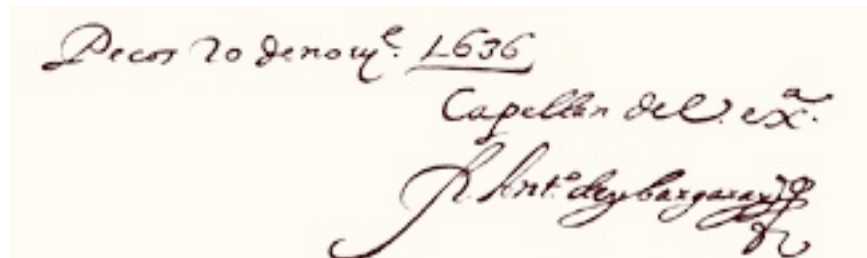 Pecos 20 de novᵉ. 1636
Capellan de V. exᵃ.
Fr. Antᵒ. de ybargaray